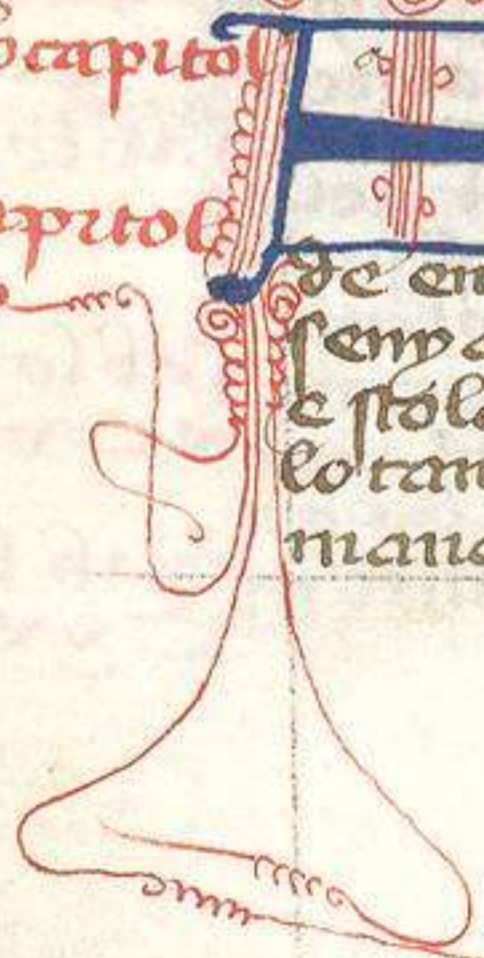 capitol
capitol
E
De en
seny
e stola
lo tan
mana